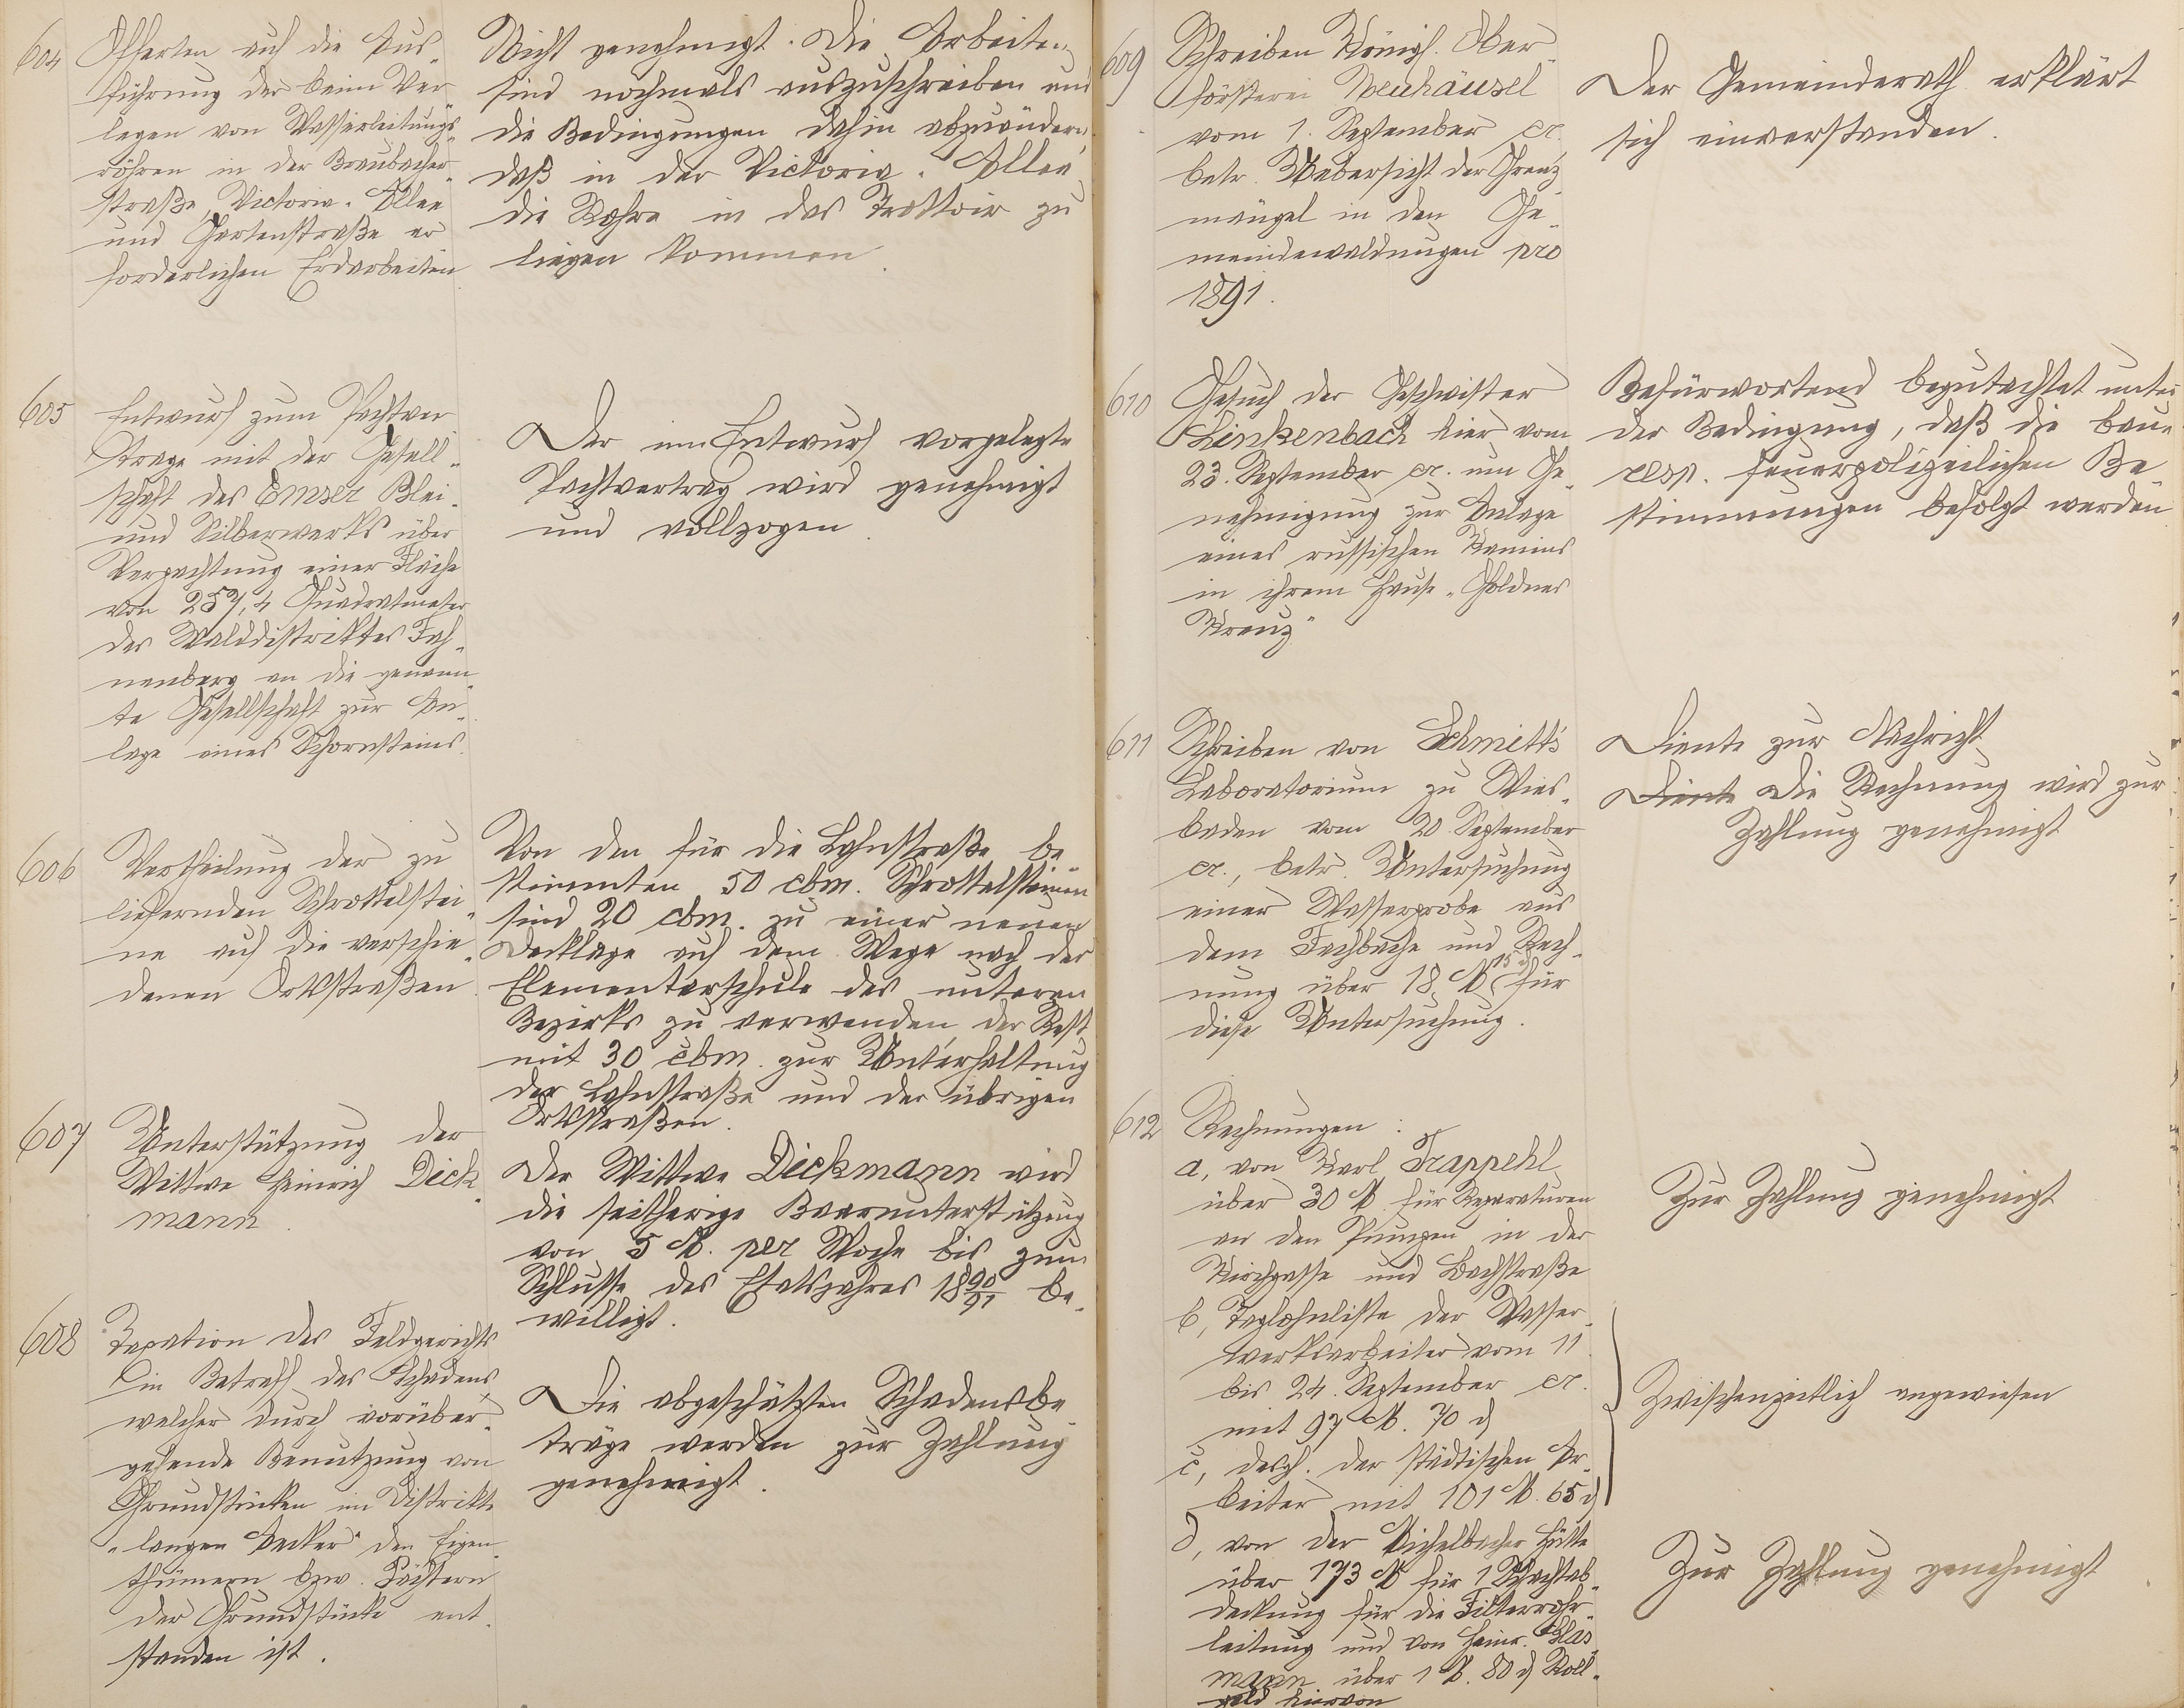 604
Offerten auf die Aus-
führung der beim Ver
legen von Wasserleitungs-
röhren in der Braubacher-
straße, Victoria-Allee
und Gartenstraße er
forderlichen Erdarbeiten
Nicht genehmigt. Die Arbeiten
sind nochmals auszuschreiben und
die Bedingungen dahin abzuändern,
daß in der Victoria-Allee
die Rohre in das Trottoir zu
liegen kommen.
605
Entwurf zum Pachtver
trage mit der Gesell-
schaft des Emser Blei-
und Silberwerks über
Verpachtung einer Fläche
von 257,4 Quadratmeter
des Walddistriktes Fah-
nenberg an die genann-
te Gesellschaft zur An-
lage eines Schornsteins.
Der im Entwurf vorgelegte
Pachtvertrag wird genehmigt
und vollzogen.
606
Vertheilung der zu
liefernden Schrottelstei-
ne auf die verschie-
denen Ortsstraßen
Von den für die Lahnstraße be-
stimmten 50 cbm. Schrottelsteinen
sind 20 cbm. zu einer neuen
Decklage auf dem Wege nach der
Elementarschule des unteren
Bezirks zu verwenden, der Rest
mit 30 cbm. zur Unterhaltung
der Lahnstraße und der übrigen
Ortsstraßen.
607
Unterstützung der
Wittwe Heinrich Dick-
mann.
Der Wittwe Dickmann wird
die seitherige Baarunterstützung
von 5 M. per Woche bis zum
Schlusse des Etatsjahres 1890/91 be-
willigt.
608
Taxation des Feldgerichts
in Betreff des Schadens,
welcher durch vorüber-
gehende Benutzung von
Grundstücken im Distrikte
"langen Aecker" den Eigen-
thümern bzw. Pächtern
der Grundstücke ent-
standen ist.
Die abgeschätzten Schadensbe-
träge werden zur Zahlung
genehmigt.
609
Schreiben Königl. Ober-
försterei Neuhäusel
vom 1. September cr.
betr. Uebersicht der Grenz-
mängel in den Ge-
meindewaldungen pro
1891.
Der Gemeinderath erklärt
sich einverstanden.
610
Gesuch der Geschwister
Linkenbach hier vom
23. September cr. um Ge-
nehmigung zur Anlage
eines russischen Kamins
in ihrem Hause "Goldnes
Kreuz"
Befürwortend begutachtet unter
der Bedingung, daß die bau-
resp. feuerpolizeilichen Be-
stimmungen befolgt werden
611
Schreiben von Schmitt's
Laboratorium zu Wies-
baden vom 20. September
cr., betr. Untersuchung
einer Wasserprobe aus
dem Fachbache und Rech-
nung über 18 M 15 ₰ für
diese Untersuchung.
Diente zur Nachricht
Diente Die Rechnung wird zur
Zahlung genehmigt
612
Rechnungen:
a, von Karl Trappehl
über 30 M für Reparaturen
an den Pumpen in der
Kirchgasse und Bachstraße
Zur Zahlung genehmigt
b, Taglohnliste der Wasser-
werksarbeiter vom 11.
bis 24. September cr.
mit 97 M. 70 ₰
c, desgl. der städtischen Ar-
beiter mit 101 M. 65 ₰
Zwischenzeitlich angewiesen
d, von der Michelbacher Hütte
über 173 M für 1 Schachtab-
deckung für die Filterrohr-
leitung und von Heinr. Glas
mann über 1 M. 80 ₰ Roll-
geld hiervon
Zur Zahlung genehmigt